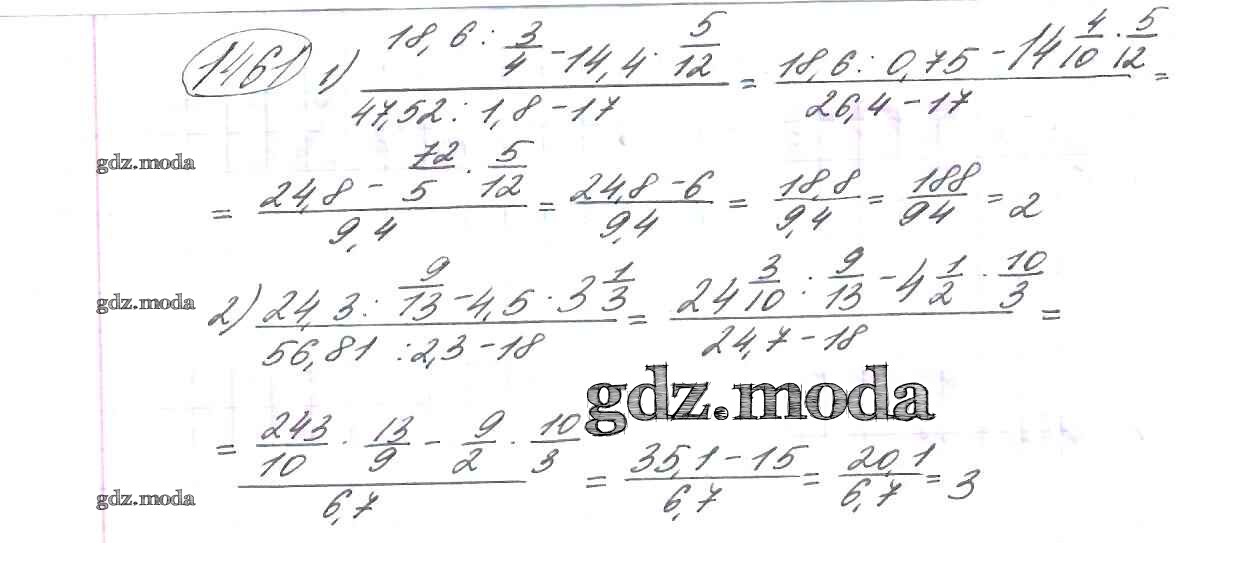 1461 1) (18,6 : 3/4 - 14,4 · 5/12) / (47,52 : 1,8 - 17) = (18,6 : 0,75 - 14 4/10 · 5/12) / (26,4 - 17) =
gdz.moda
= (24,8 - 72/5 · 5/12) / 9,4 = (24,8 - 6) / 9,4 = 18,8/9,4 = 188/94 = 2
gdz.moda
2) (24,3 : 9/13 - 4,5 · 3 1/3) / (56,81 : 2,3 - 18) = (24 3/10 : 9/13 - 4 1/2 · 10/3) / (24,7 - 18) =
gdz.moda
= (243/10 · 13/9 - 9/2 · 10/3) / 6,7 = (35,1 - 15) / 6,7 = 20,1/6,7 = 3
gdz.moda